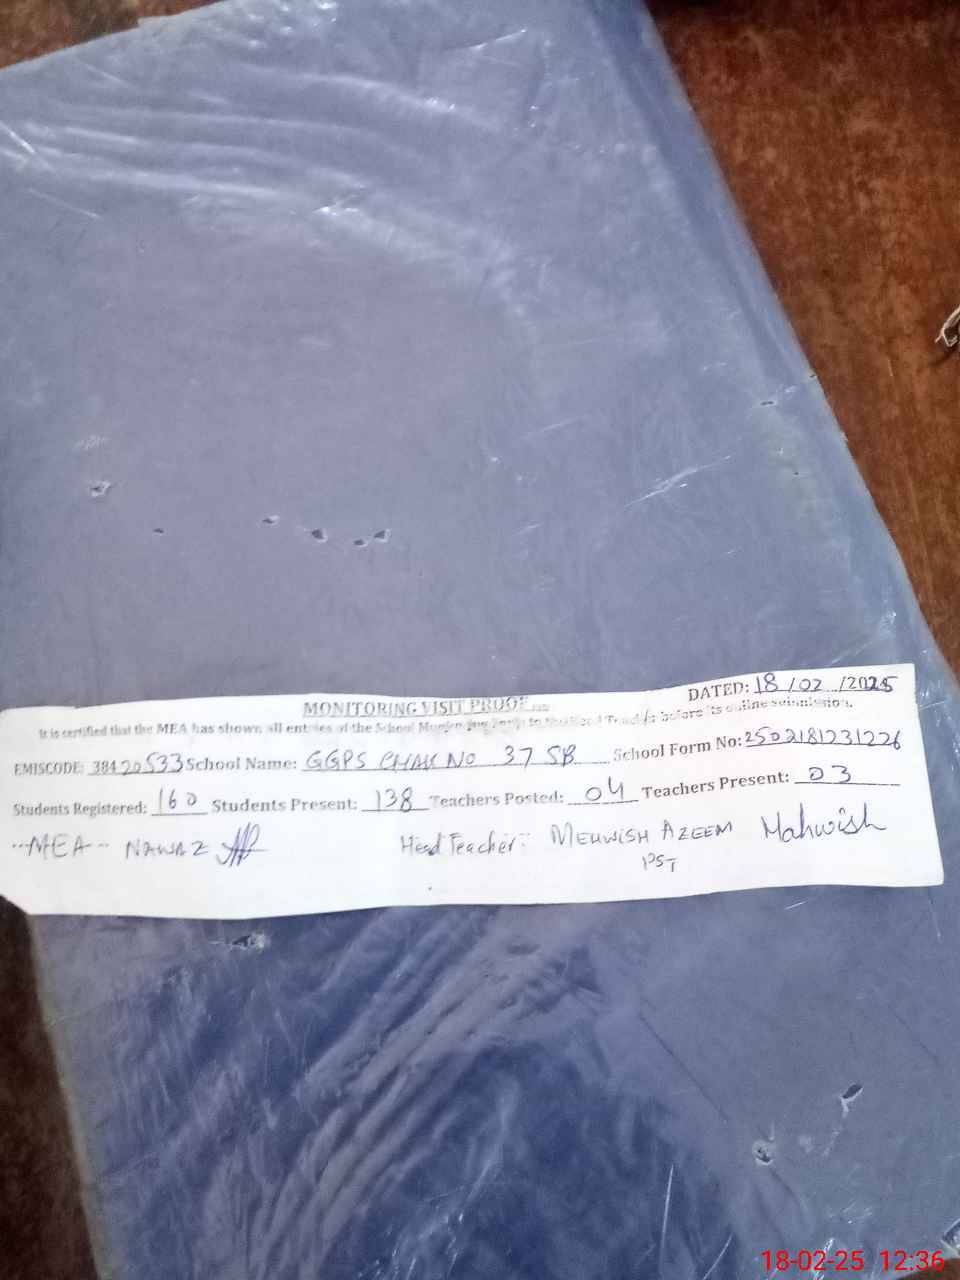 MONITORING VISIT PROOF
DATED: 18/02/2025
It is certified that the MEA has shown all entries of the School to the Head before its online submission.
EMISCODE: 38420533 School Name: GGPS CHAK NO 37 SB School Form No: 2502181231226
Students Registered: 160 Students Present: 138 Teachers Posted: 04 Teachers Present: 03
MEA NAWAZ Head Teacher: MEHWISH AZEEM Mahwish
PST
18-02-25 12:36